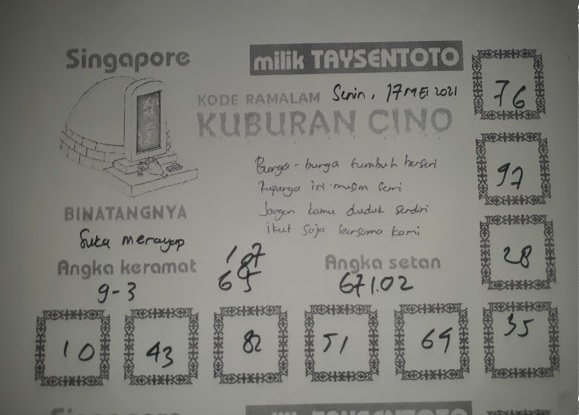 Singapore
milik TAYSENTOTO
KODE RAMALAM Senin, 17 MEI 2021
KUBURAN CINO
Bunga-bunga tumbuh berseri
Rupanya iri musim semi
Jangan kamu duduk sendiri
Ikut saja bersama kami
BINATANGNYA
Suka merayap
Angka keramat
9-3
187
695
Angka setan
671.02
76
97
28
35
10 43 82 51 64
Singapore
milik TAYSENTOTO